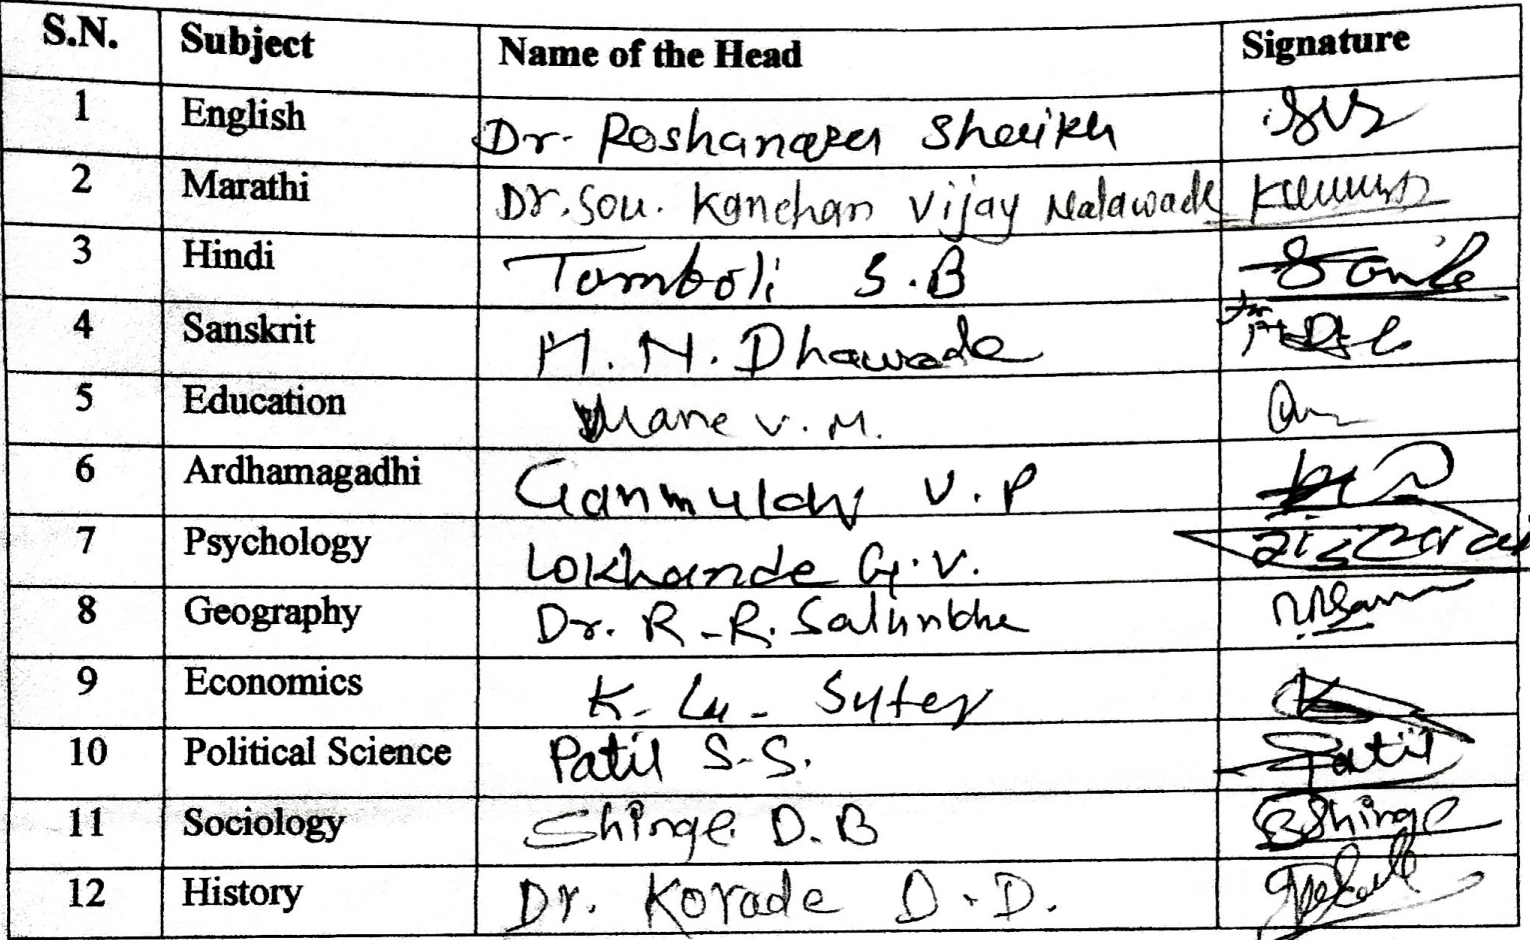 S.N. Subject Name of the Head Signature
1 English Dr. Roshanara Shaikh
2 Marathi Dr. Sou. Kanchan Vijay Nalawade
3 Hindi Tamboli S.B
4 Sanskrit M. N. Dhawade
5 Education Mane V. M.
6 Ardhamagadhi V. P
7 Psychology Lokhande G. V.
8 Geography Dr. R. R. Salunkhe
9 Economics K.
10 Political Science Patil S.S. Patil
11 Sociology Shinge D.B Shinge
12 History Dr. Korade D.D.